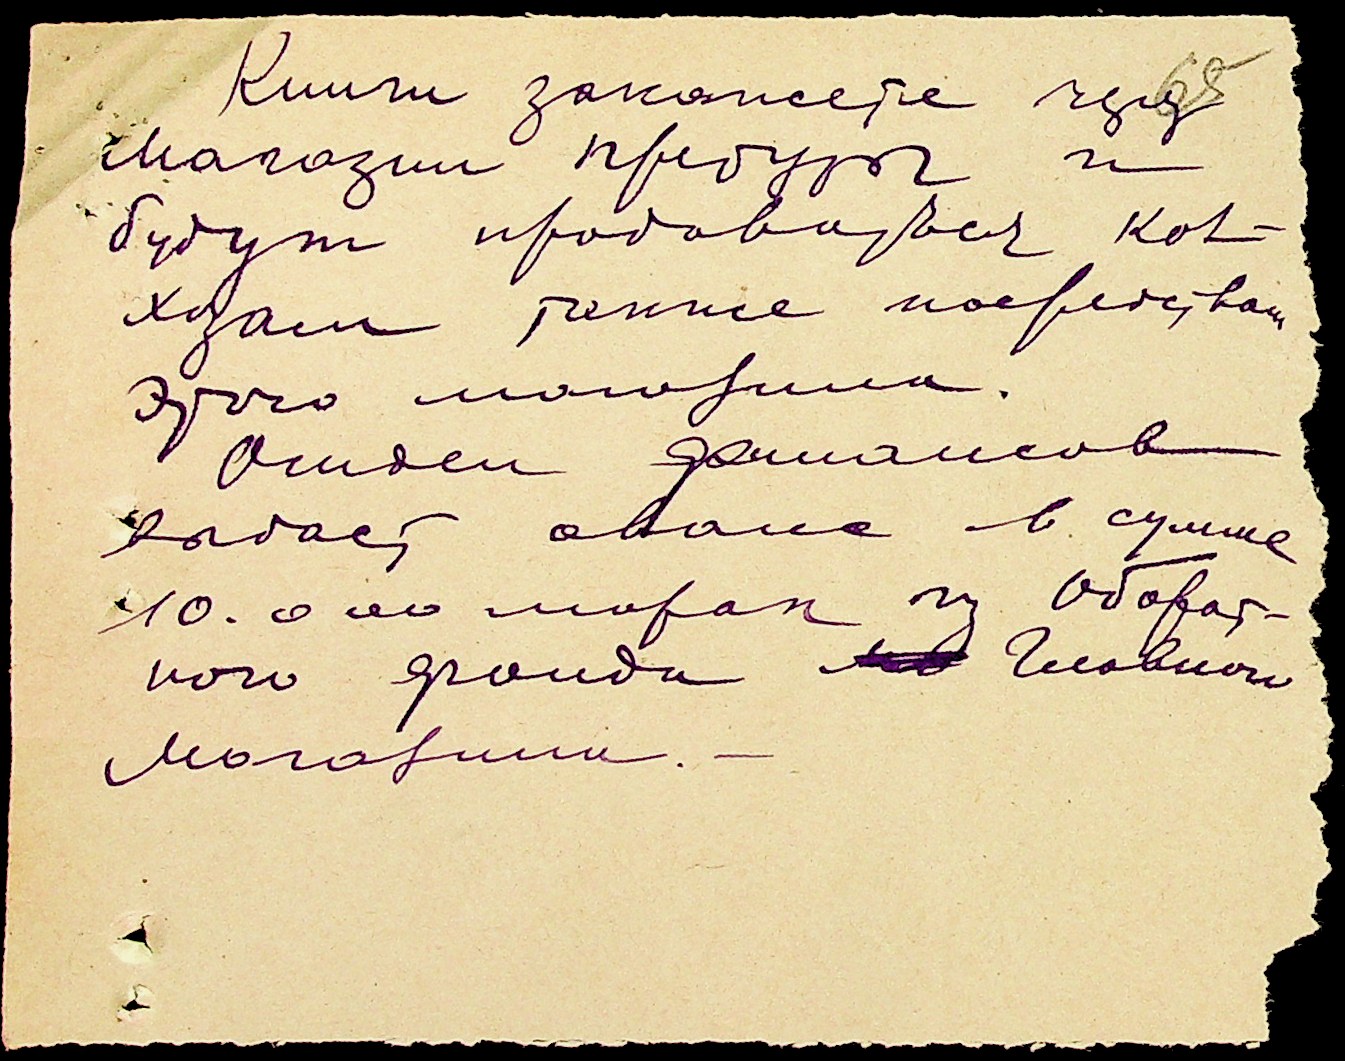 Книги закажете через
магазин префуры и
будут продаваться кол-
хозам также посредствам
этого магазина.
Отдел финансов
выдаст аванс в сумме
10.000 марак из Оборат-
ного фонда Главного
магазина. —
65